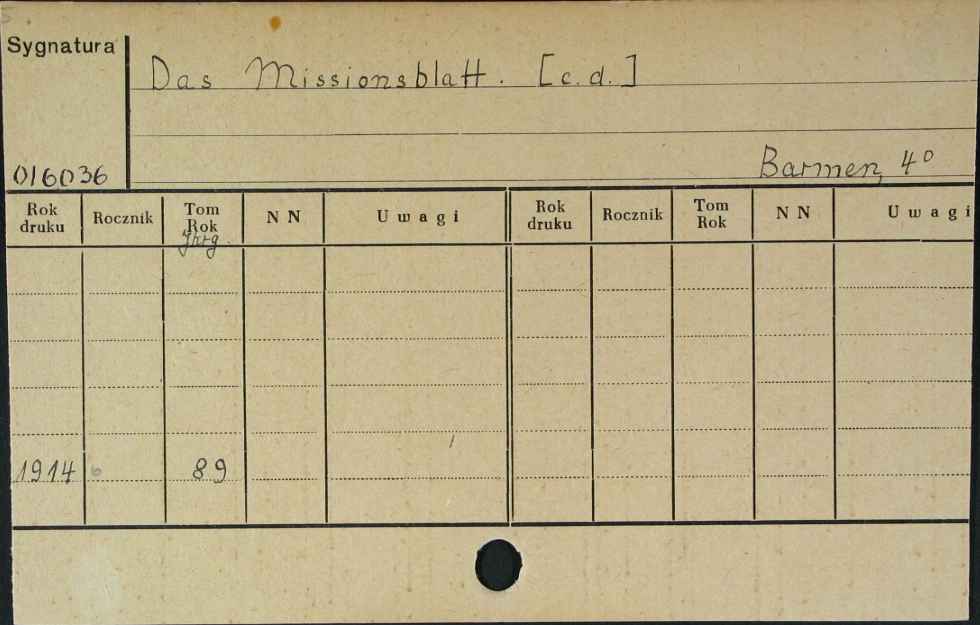 Sygnatura
Das Missionsblatt. [c.d.]
016036
Barmen, 4°
Rok druku Rocznik Tom Rok Jhrg. N N Uwagi Rok druku Rocznik Tom Rok N N Uwagi
1914 89